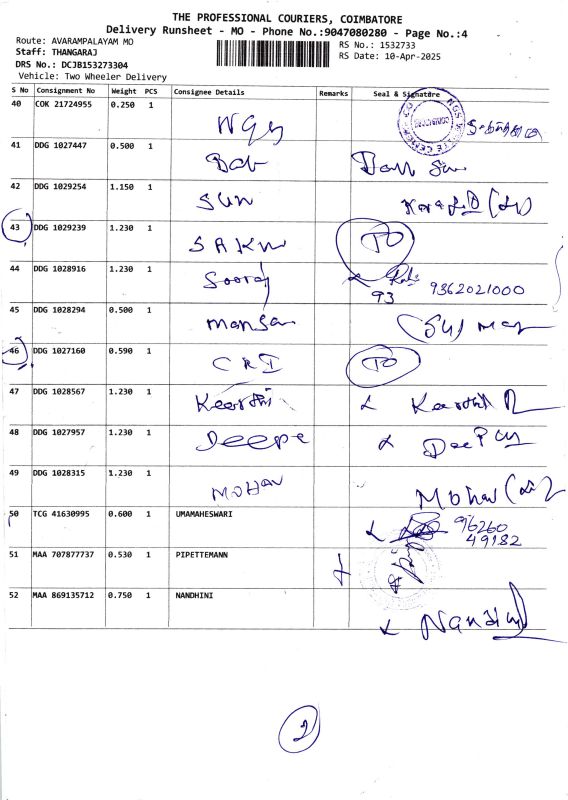 THE PROFESSIONAL COURIERS, COIMBATORE
Delivery Runsheet - MO - Phone No.:9047080280 - Page No.:4
Route: AVARAMPALAYAM MO
Staff: THANGARAJ
DRS No.: DCJB153273304
Vehicle: Two Wheeler Delivery
RS No.: 1532733
RS Date: 10-Apr-2025
S No Consignment No Weight PCS Consignee Details Remarks Seal & Signature
40 COK 21724955 0.250 1
41 DDG 1027447 0.500 1
42 DDG 1029254 1.150 1 SUN
43 DDG 1029239 1.230 1 SAKN
44 DDG 1028916 1.230 1 Sooraj 93 9362021000
45 DDG 1028294 0.500 1
46 DDG 1027160 0.590 1 CRI
47 DDG 1028567 1.230 1 Keerthi
48 DDG 1027957 1.230 1 Deepe
49 DDG 1028315 1.230 1 MOHAN Mohan
50 TCG 41630995 0.600 1 UMAMAHESWARI 96260
49182
51 MAA 707877737 0.530 1 PIPETTEMANN
52 MAA 869135712 0.750 1 NANDHINI
2